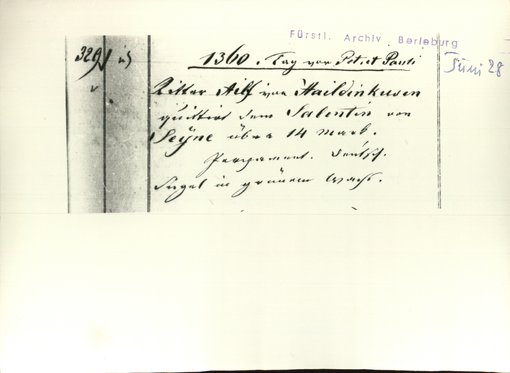 Fürstl. Archiv Berleburg
329
1360. Tag vor Petri et Pauli
Juni 28
Ritter Ailf von Haildinkusen
quittirt dem Salentin von
Seyne über 14 Mark.
Pergament. Deutsch.
Siegel in grünem Wachs.